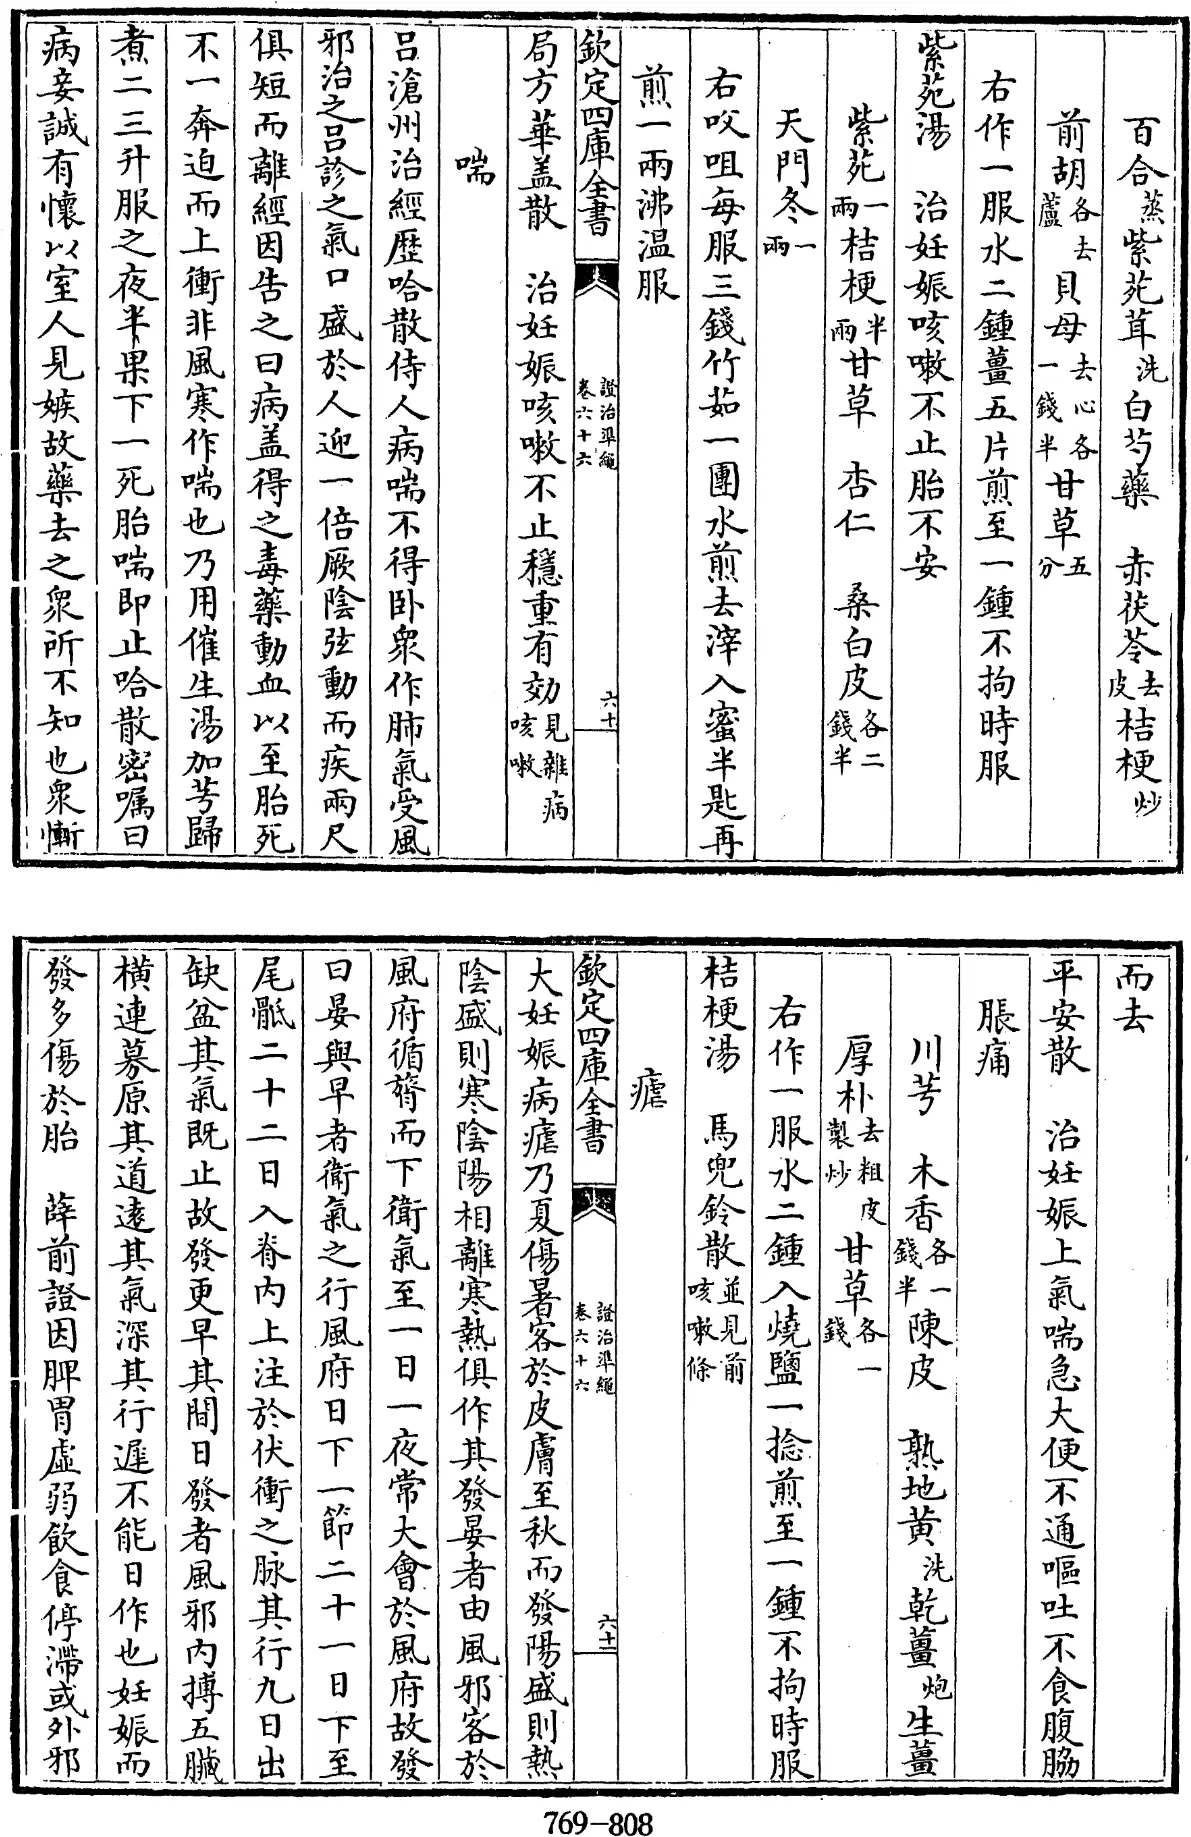 百合蒸紫苑茸洗白芍藥　赤茯苓去皮桔梗炒
前胡各去蘆貝母去心各一錢半甘草五分
右作一服水二鍾薑五片煎至一鍾不拘時服
紫苑湯　治妊娠咳嗽不止胎不安
紫苑一兩桔梗半兩甘草　杏仁　桑白皮各二錢半
天門冬一兩
右㕮咀每服三錢竹茹一團水煎去滓入蜜半匙再
煎一兩沸温服
欽定四庫全書　證治準繩卷六十六　六十
局方華盖散　治妊娠咳嗽不止穩重有効見雜病咳嗽
喘
吕滄州治經歷哈散侍人病喘不得卧衆作肺氣受風
邪治之吕診之氣口盛於人迎一倍厥陰弦動而疾兩尺
俱短而離經因告之曰病盖得之毒藥動血以至胎死
不一奔迫而上衝非風寒作喘也乃用催生湯加芎歸
煮二三升服之夜半果下一死胎喘即止哈散密嘱曰
病妾誠有懷以室人見嫉故藥去之衆所不知也衆慚
而去
平安散　治妊娠上氣喘急大便不通嘔吐不食腹脇
脹痛
川芎　木香各一錢半陳皮　熟地黄洗乾薑炮生薑
厚朴去粗皮製炒甘草各一錢
右作一服水二鍾入燒鹽一捻煎至一鍾不拘時服
桔梗湯　馬兜鈴散並見前咳嗽條
瘧
欽定四庫全書　證治準繩卷六十六　六十一
大妊娠病瘧乃夏傷暑客於皮膚至秋而發陽盛則熱
陰盛則寒陰陽相離寒熱俱作其發晏者由風邪客於
風府循膂而下衛氣至一日一夜常大會於風府故發
日晏與早者衛氣之行風府日下一節二十一日下至
尾骶二十二日入脊内上注於伏衝之脉其行九日出
缺盆其氣既上故發更早其間日發者風邪内搏五臟
橫連募原其道遠其氣深其行遲不能日作也妊娠而
發多傷於胎　薛前證因脾胃虛弱飲食停滯或外邪
769-808